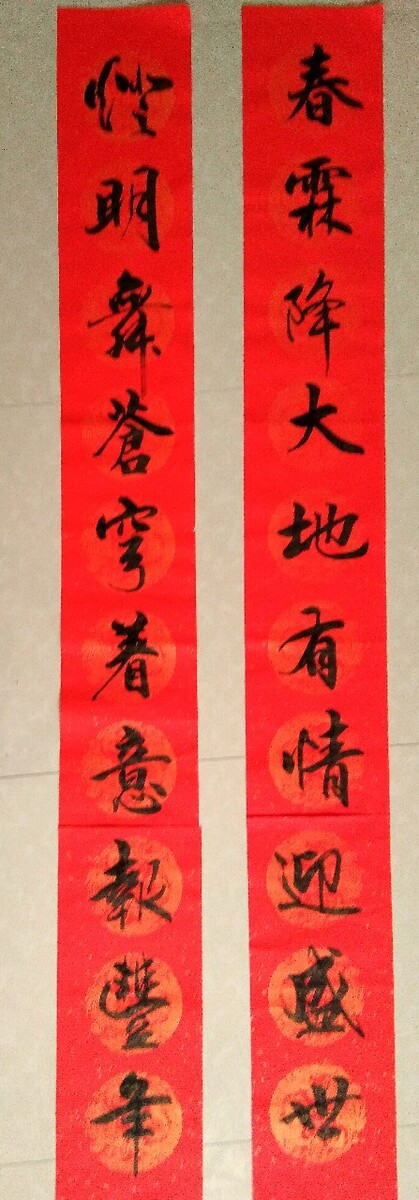 春霖降大地有情迎盛世
燈明舞蒼穹着意報豐年